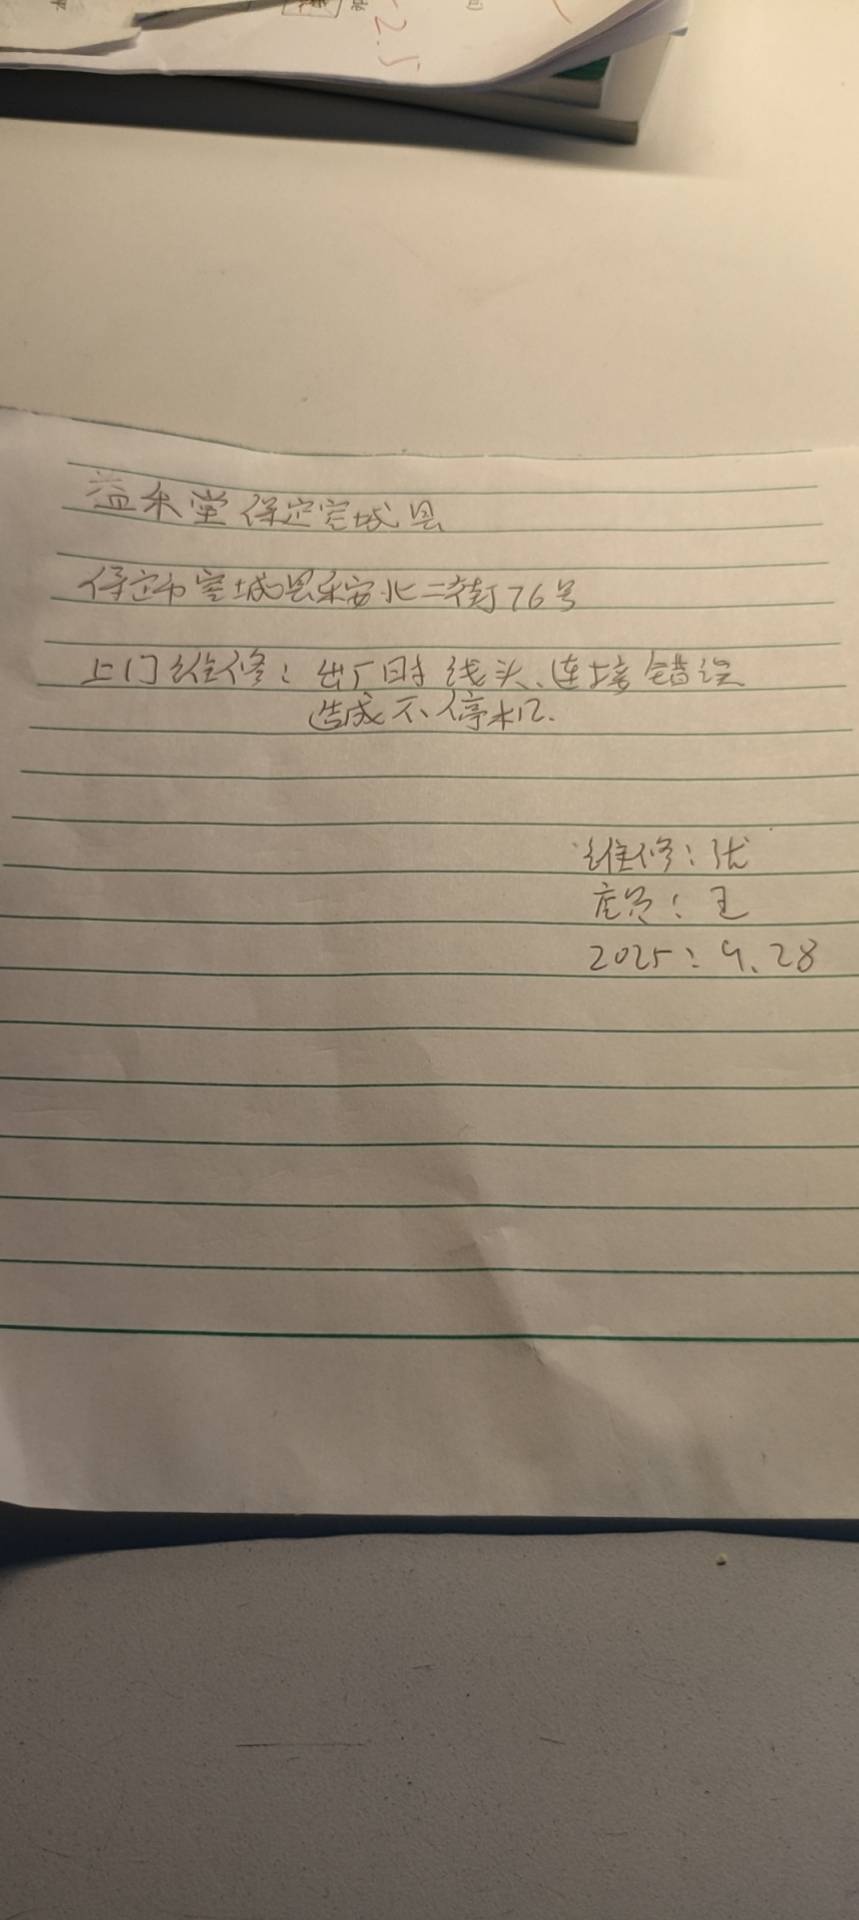 2.5
益禾堂保定容城县
保定市容城县乐安北二街76号
上门维修：出厂时线头、连接错误
造成不停机.
维修：张
店员：王
2025：9.28